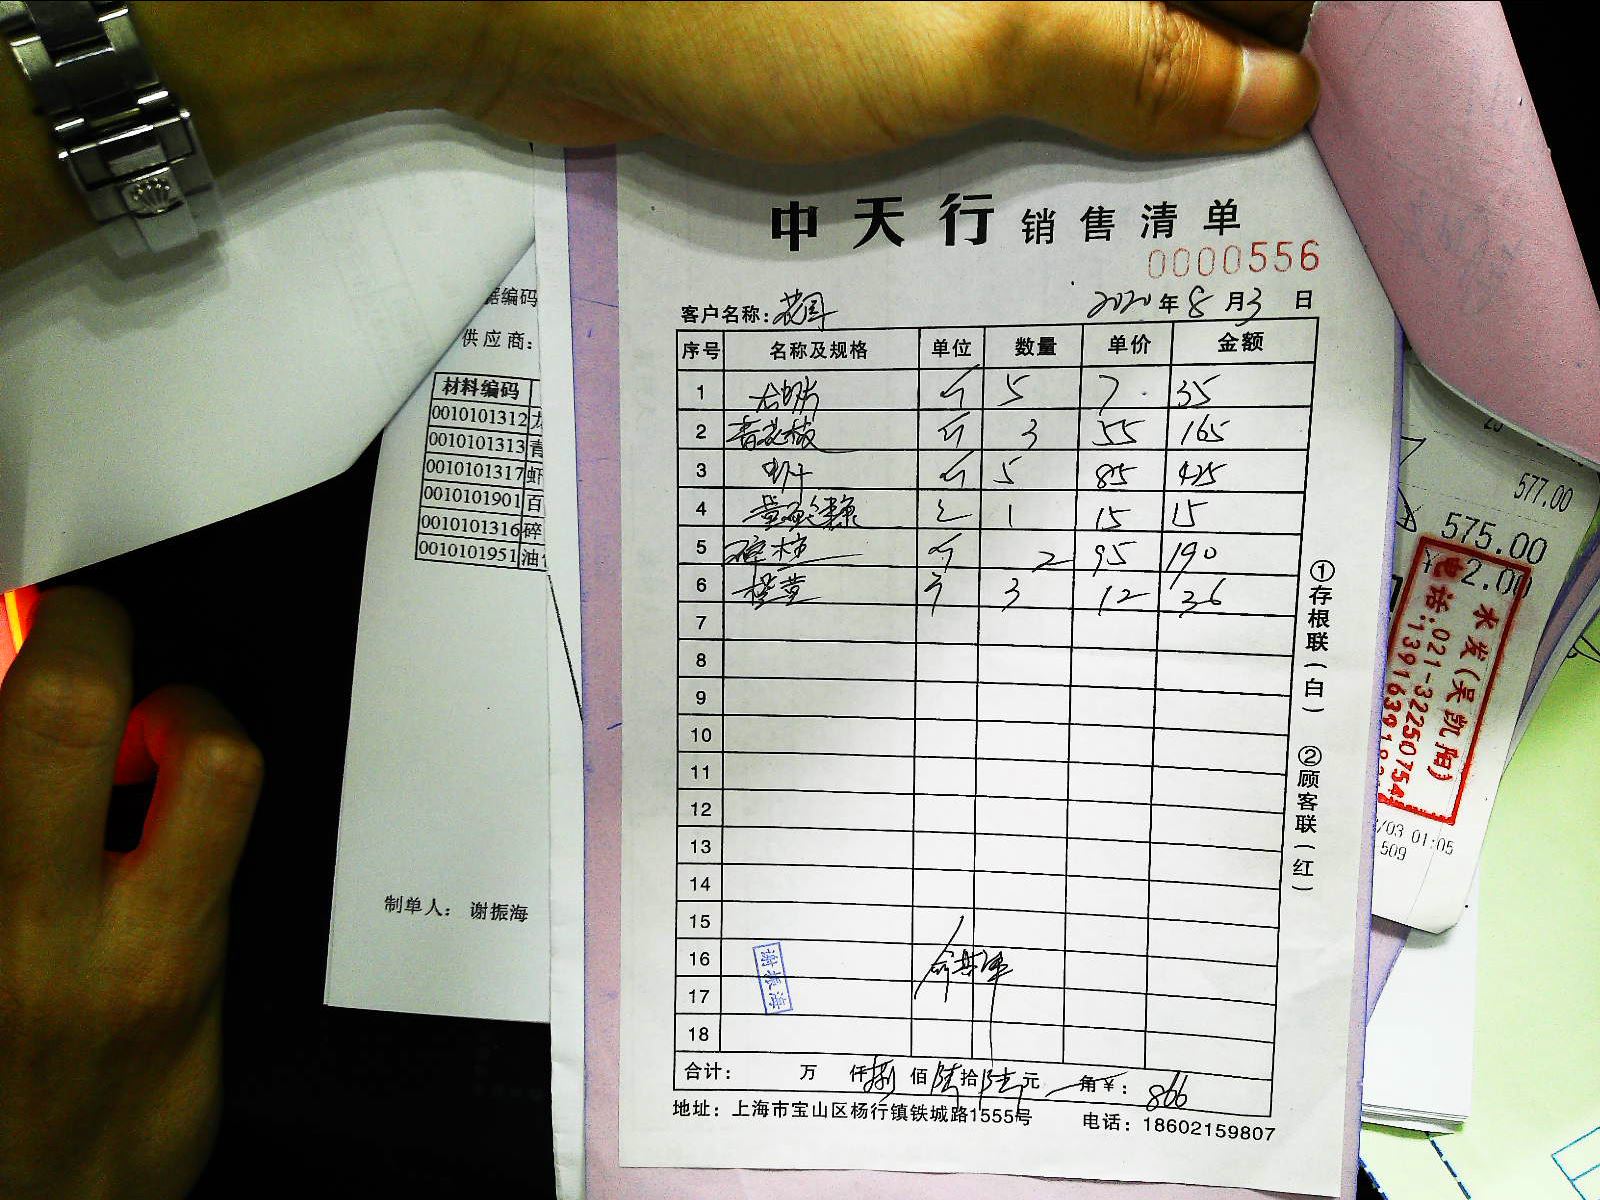 中天行 销售清单
0000556
客户名称: 花园 2020年8月3日
序号 名称及规格 单位 数量 单价 金额
1 龙虾片 斤 5 7 35
2 青花椒 斤 3 55 165
3 虾干 斤 5 85 425
4 1 15 15
5 碎柱 斤 2 95 190
6 3 12 36
7
8
9
10
11
12
13
14
15
16
17
18
谢振海
合计: 万 仟 捌佰 陆拾 陆元 角 ¥: 866
地址: 上海市宝山区杨行镇铁城路1555号 电话: 18602159807
①存根联(白) ②顾客联(红)
据编码
供应商:
材料编码
0010101312 龙
0010101313 青
0010101317 虾
0010101901 百
0010101316 碎
0010101951 油
制单人: 谢振海
577.00
575.00
¥2.00
水发(吴凯阳)
电话:021-32250754
/03 01:05
509